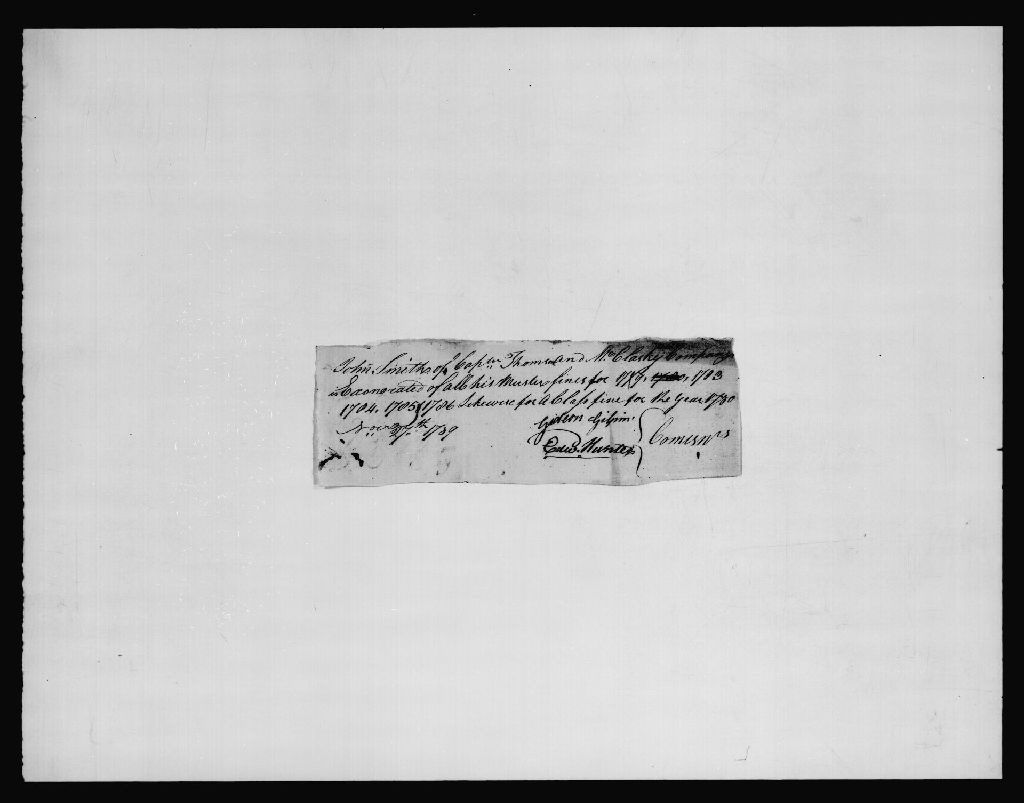 John Smith of Captn Thomson and Mc Clasky Company
is Exonorated of all his Muster fines for 1783
1784, 1785 & 1786 Likewise for A Class fine for the Year 1780
Novem 27th 1789
Gideon Gilpin
Edwd. Hunter
Comisnrs